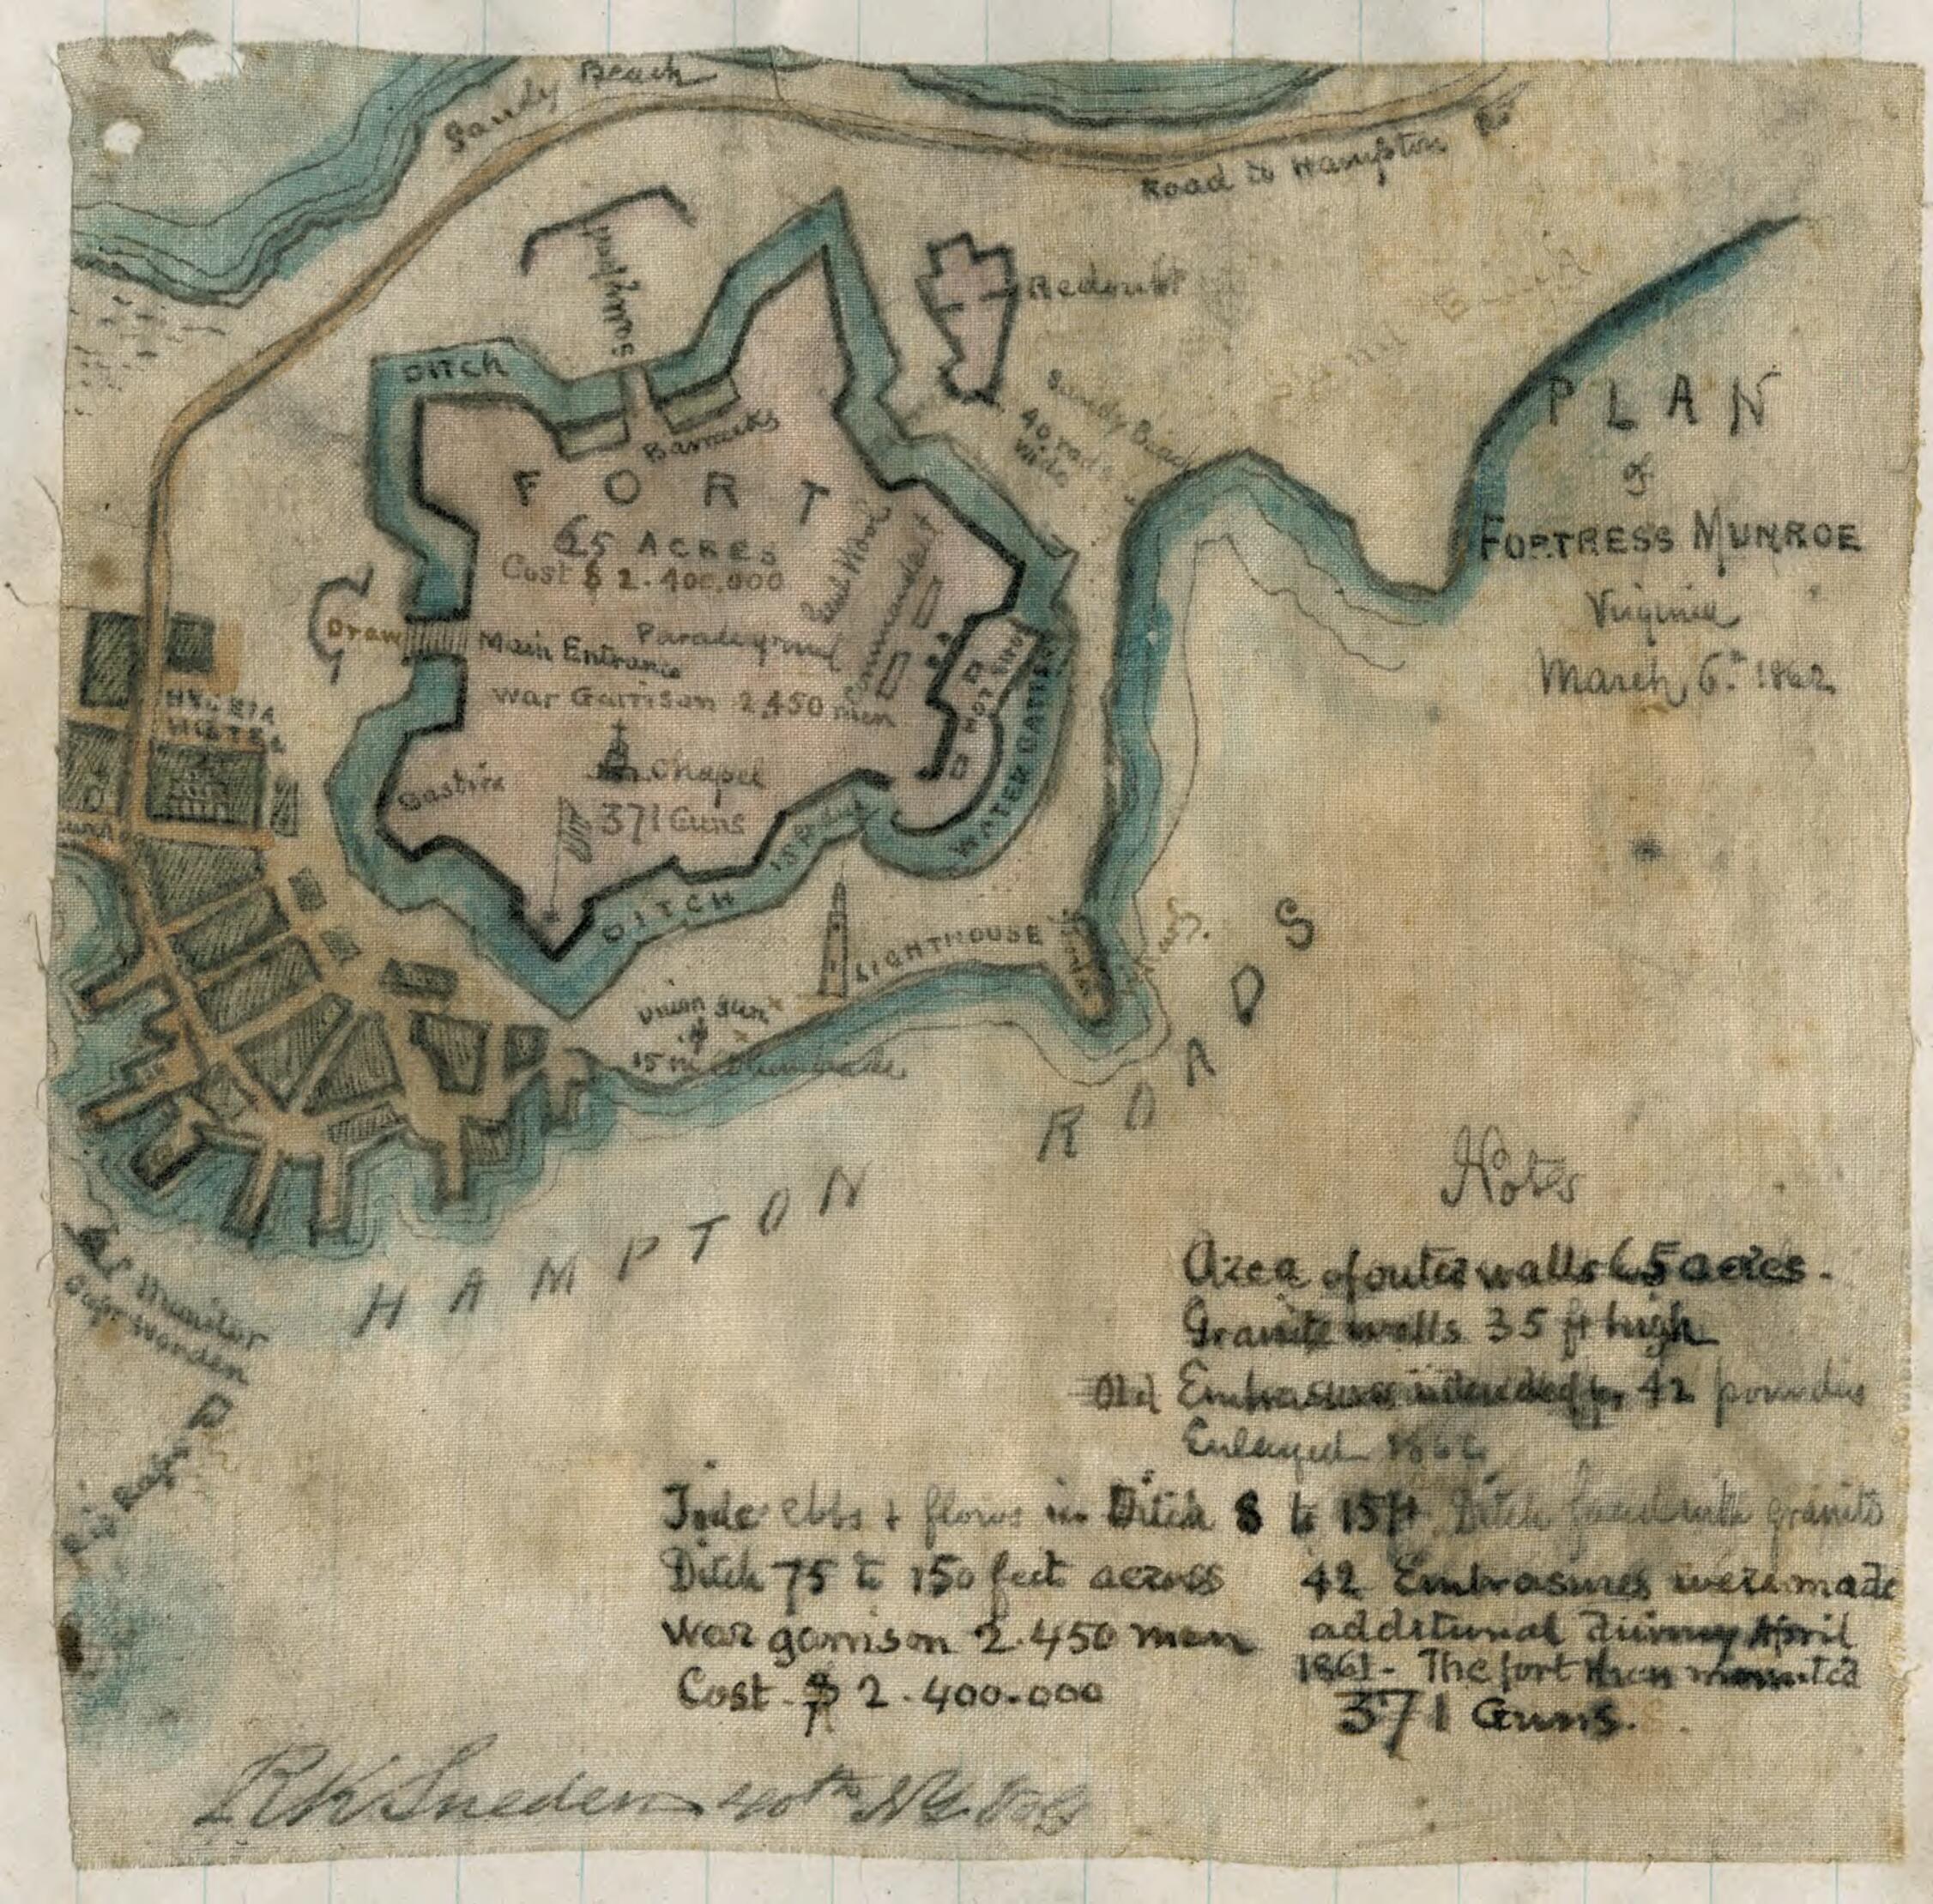 Sandy Beach
Road to Hampton Rs
Redoubt
Sandy Beach
40 rods
wide
DITCH
Barracks
FORT
65 ACRES
Cost $ 2.400,000
Draw
Main Entrance
Paradeground
Commandant
War Garrison 2,450 men
HOT SHOT
WATER BATTERY
HYGEIA
HOTEL
Bastion
Chapel
371 Guns
DITCH
15
LIGHTHOUSE
Union Gun
15 in
PLAN
of
FORTRESS MUNROE
Virginia
March 6th 1862
HAMPTON ROADS
Monitor
Capt Worden
Rip Raps
Notes
Area of outer walls 65 acres.
Granite walls 35 ft high
Old Embrasures intended for 42 pounders
Enlarged 1862
Tide ebbs & flows in Ditch 8 to 15 ft Ditch faced with granite
Ditch 75 to 150 feet across
War garrison 2.450 men
Cost $ 2.400.000
42 Embrasures were made
additional during April
1861 - The fort then mounted
371 Guns.
RK Sneden 40th NY Vols